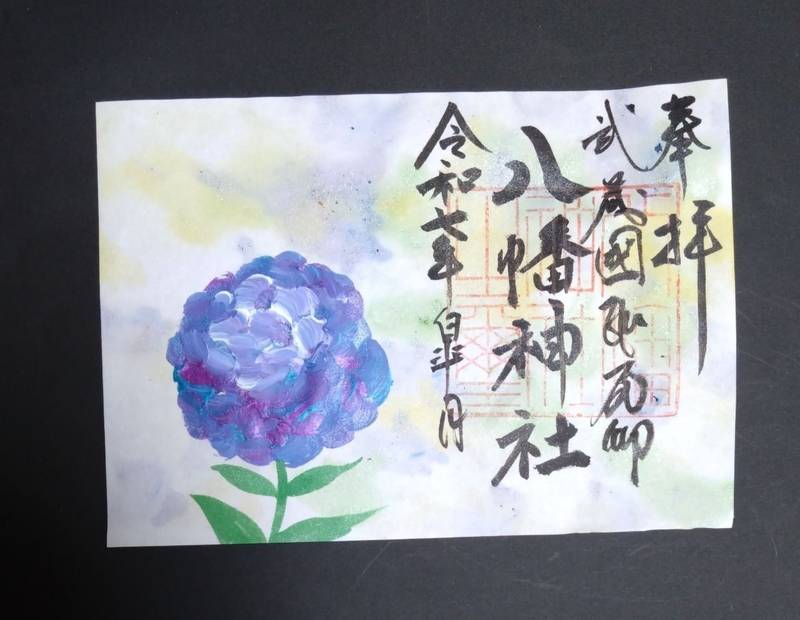 奉拝
武蔵國
八幡神社
令和七年皐月